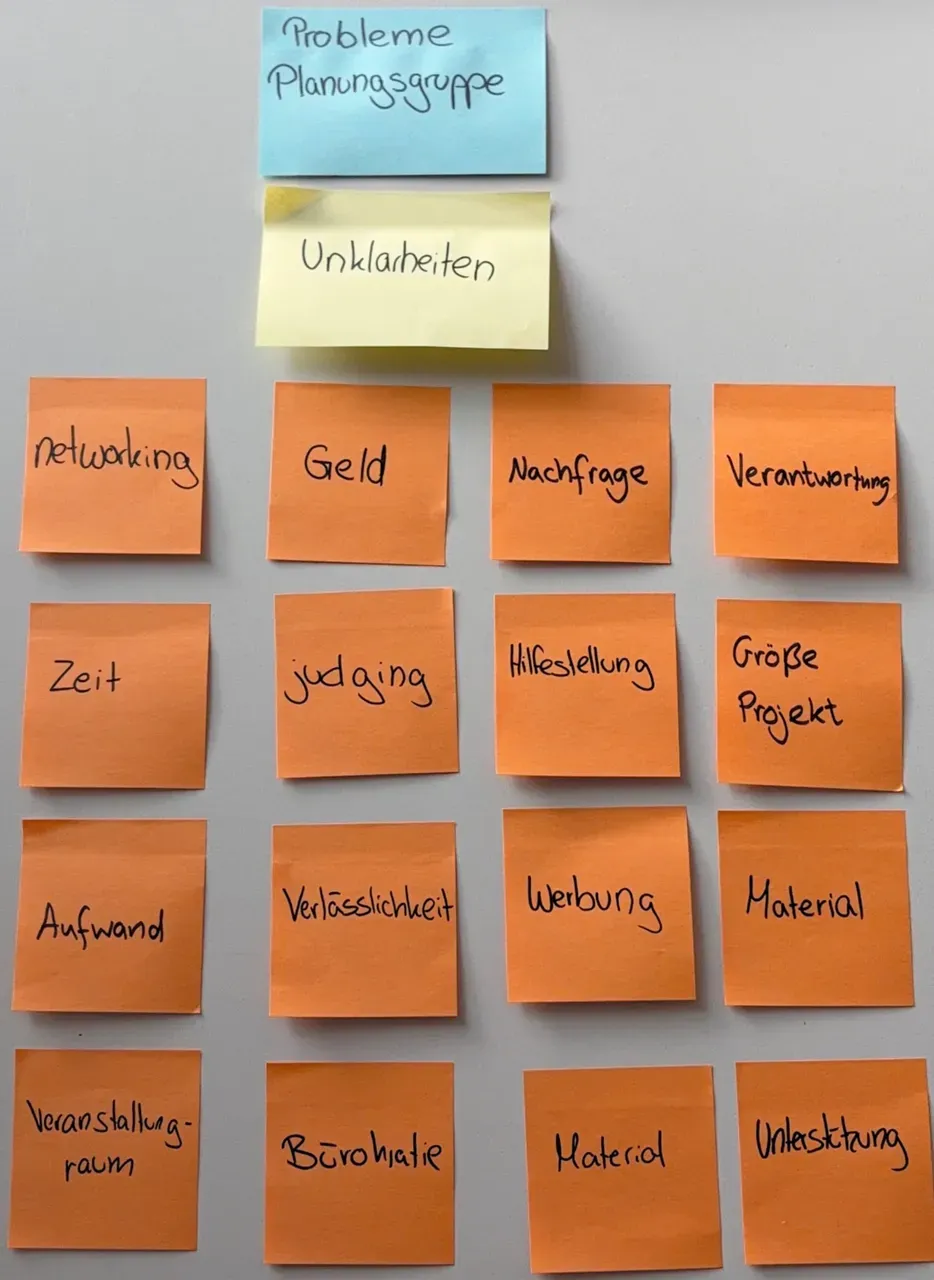 Probleme
Planungsgruppe
Unklarheiten
networking
Geld
Nachfrage
Verantwortung
Zeit
judging
Hilfestellung
Größe
Projekt
Aufwand
Verlässlichkeit
Werbung
Material
Veranstaltung-
raum
Bürokratie
Material
Unterstützung